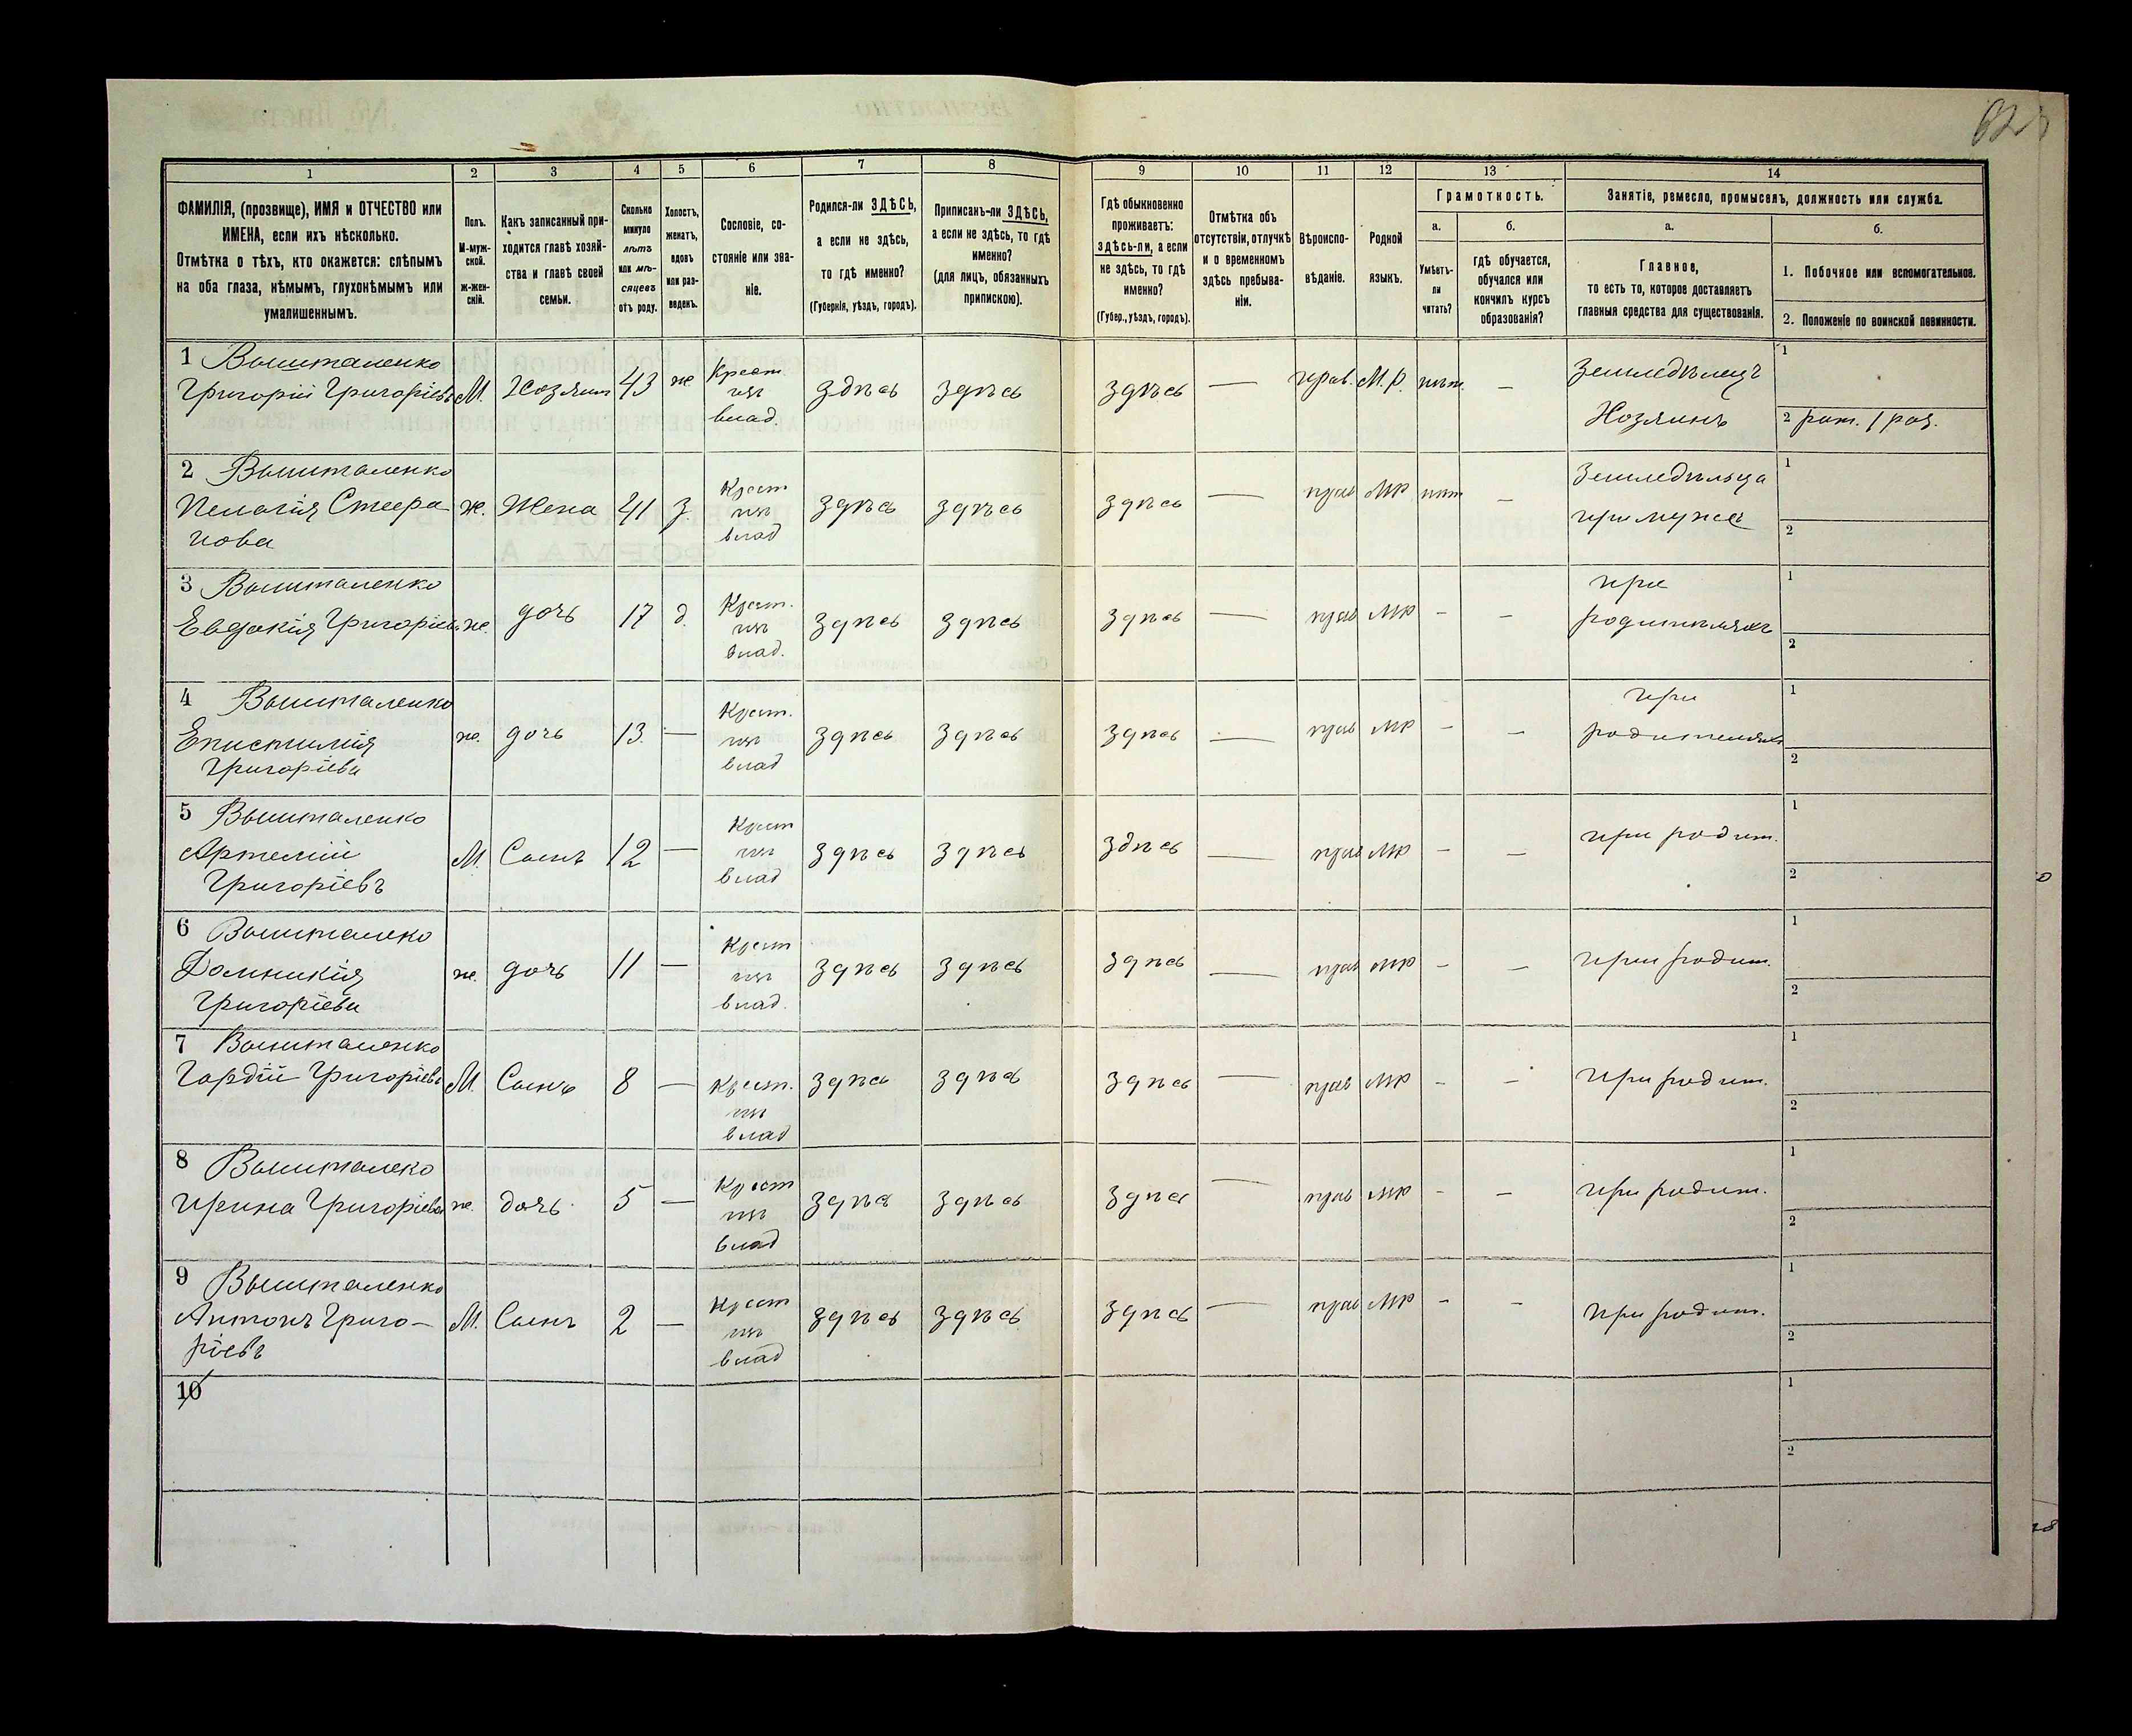 1 2 3 4 5 6 7 8 9 10 11 12 13 14
ФАМИЛІЯ, (прозвище), ИМЯ и ОТЧЕСТВО или
ИМЕНА, если ихъ нѣсколько.
Отмѣтка о тѣхъ, кто окажется: слѣпымъ
на оба глаза, нѣмымъ, глухонѣмымъ или
умалишеннымъ.
Полъ.
М-муж-
ской.
ж-жен-
скій.
Какъ записанный при-
ходится главѣ хозяй-
ства и главѣ своей
семьи.
Сколько
минуло
лѣтъ
или мѣ-
сяцевъ
отъ роду.
Холостъ,
женатъ,
вдовъ
или раз-
веденъ.
Сословіе, со-
стояніе или зва-
ніе.
Родился-ли ЗДѢСЬ,
а если не здѣсь,
то гдѣ именно?
(Губернія, уѣздъ, городъ).
Приписанъ-ли ЗДѢСЬ,
а если не здѣсь, то гдѣ
именно?
(для лицъ, обязанныхъ
припискою).
Гдѣ обыкновенно
проживаетъ:
здѣсь-ли, а если
не здѣсь, то гдѣ
именно?
(Губер., уѣздъ, городъ).
Отмѣтка объ
отсутствіи, отлучкѣ
и о временномъ
здѣсь пребыва-
ніи.
Вѣроиспо-
вѣданіе.
Родной
языкъ.
Грамотность.
а.
Умѣетъ-
ли
читать?
б.
гдѣ обучается,
обучался или
кончилъ курсъ
образованія?
Занятіе, ремесло, промыселъ, должность или служба.
а.
Главное,
то есть то, которое доставляетъ
главныя средства для существованія.
б.
1. Побочное или вспомогательное.
2. Положеніе по воинской повинности.
1 Вышталенко
Григорій Григорьевъ М. Хозяинъ 43 ж Крест. изъ влад. здѣсь здѣсь здѣсь — прав. М.р. нѣт. — Земледѣлецъ Хозяинъ 1 2 рат. 1 раз.
2 Вышталенко
Пелагія Стефа-
нова ж. Жена 41 з. Крест изъ влад здѣсь здѣсь здѣсь — прав мр нѣт — Земледѣльца при мужѣ 1 2
3 Вышталенко
Евдокія Григоріева ж. дочь 17 д. Крест. изъ влад. здѣсь здѣсь здѣсь — прав мр - — при родителяхъ 1 2
4 Вышталенко
Епистимія
Григоріева ж. дочь 13. — Крест. изъ влад здѣсь здѣсь здѣсь — прав мр - — при родителяхъ 1 2
5 Вышталенко
Артемій
Григоріевъ М. Сынъ 12 — Крест изъ влад здѣсь здѣсь здѣсь — прав мр - — при родит. 1 2
6 Вышталеко
Домникія
Григоріева ж. дочь 11 — Крест изъ влад. здѣсь здѣсь здѣсь — прав мр - — при родит. 1 2
7 Вышталенко
Гордій Григоріевъ М. Сынъ 8 — Крест. изъ влад здѣсь здѣсь здѣсь — прав мр - — при родит. 1 2
8 Вышталеко
Ирина Григоріева ж. дочь 5 — Крест изъ влад здѣсь здѣсь здѣсь — прав мр - — при родит. 1 2
9 Вышталенко
Антонъ Григо-
ріевъ М. Сынъ 2 — Крест изъ влад здѣсь здѣсь здѣсь — прав мр - — при родит. 1 2
10 1 2